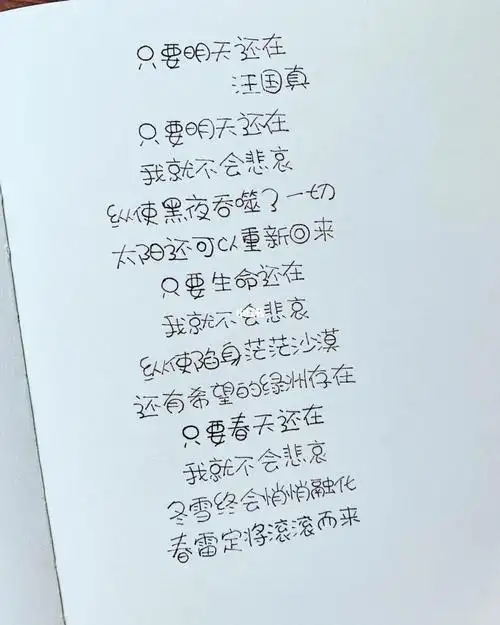 只要明天还在
汪国真
只要明天还在
我就不会悲哀
纵使黑夜吞噬了一切
太阳还可以重新回来
只要生命还在
我就不会悲哀
纵使陷身茫茫沙漠
还有希望的绿洲存在
只要春天还在
我就不会悲哀
冬雪终会悄悄融化
春雷定将滚滚而来